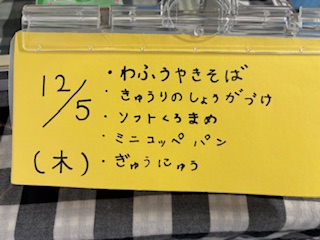 12/5
(木)
・わふうやきそば
・きゅうりのしょうがづけ
・ソフトくろまめ
・ミニコッペパン
・ぎゅうにゅう